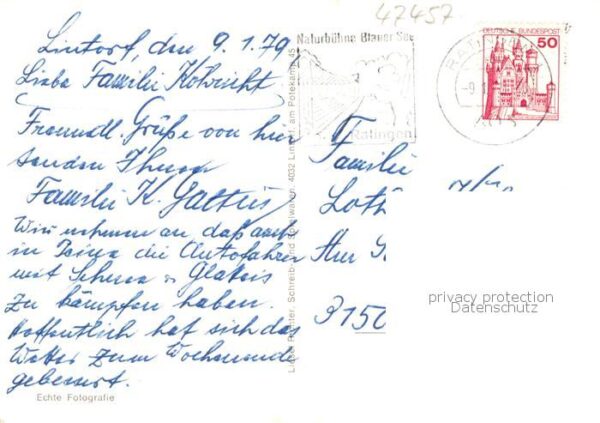 47457
Lintorf, den 9.1.79
Liebe Familie
Freundl. Grüße von hier
senden Ihnen
Familie K.
Wir nehmen an daß auch
in die Autofahrer
mit Schnee u. Glatteis
zu kämpfen haben.
Hoffentlich hat sich das
Wetter zum Wochenende
gebessert.
Echte Fotografie
Schreib- und Spielwaren, 4032 Lintorf, am Potekamp 45
Naturbühne Blauer See
Ratingen
DEUTSCHE BUNDESPOST
50
Familie
Loth
3150
privacy protection
Datenschutz